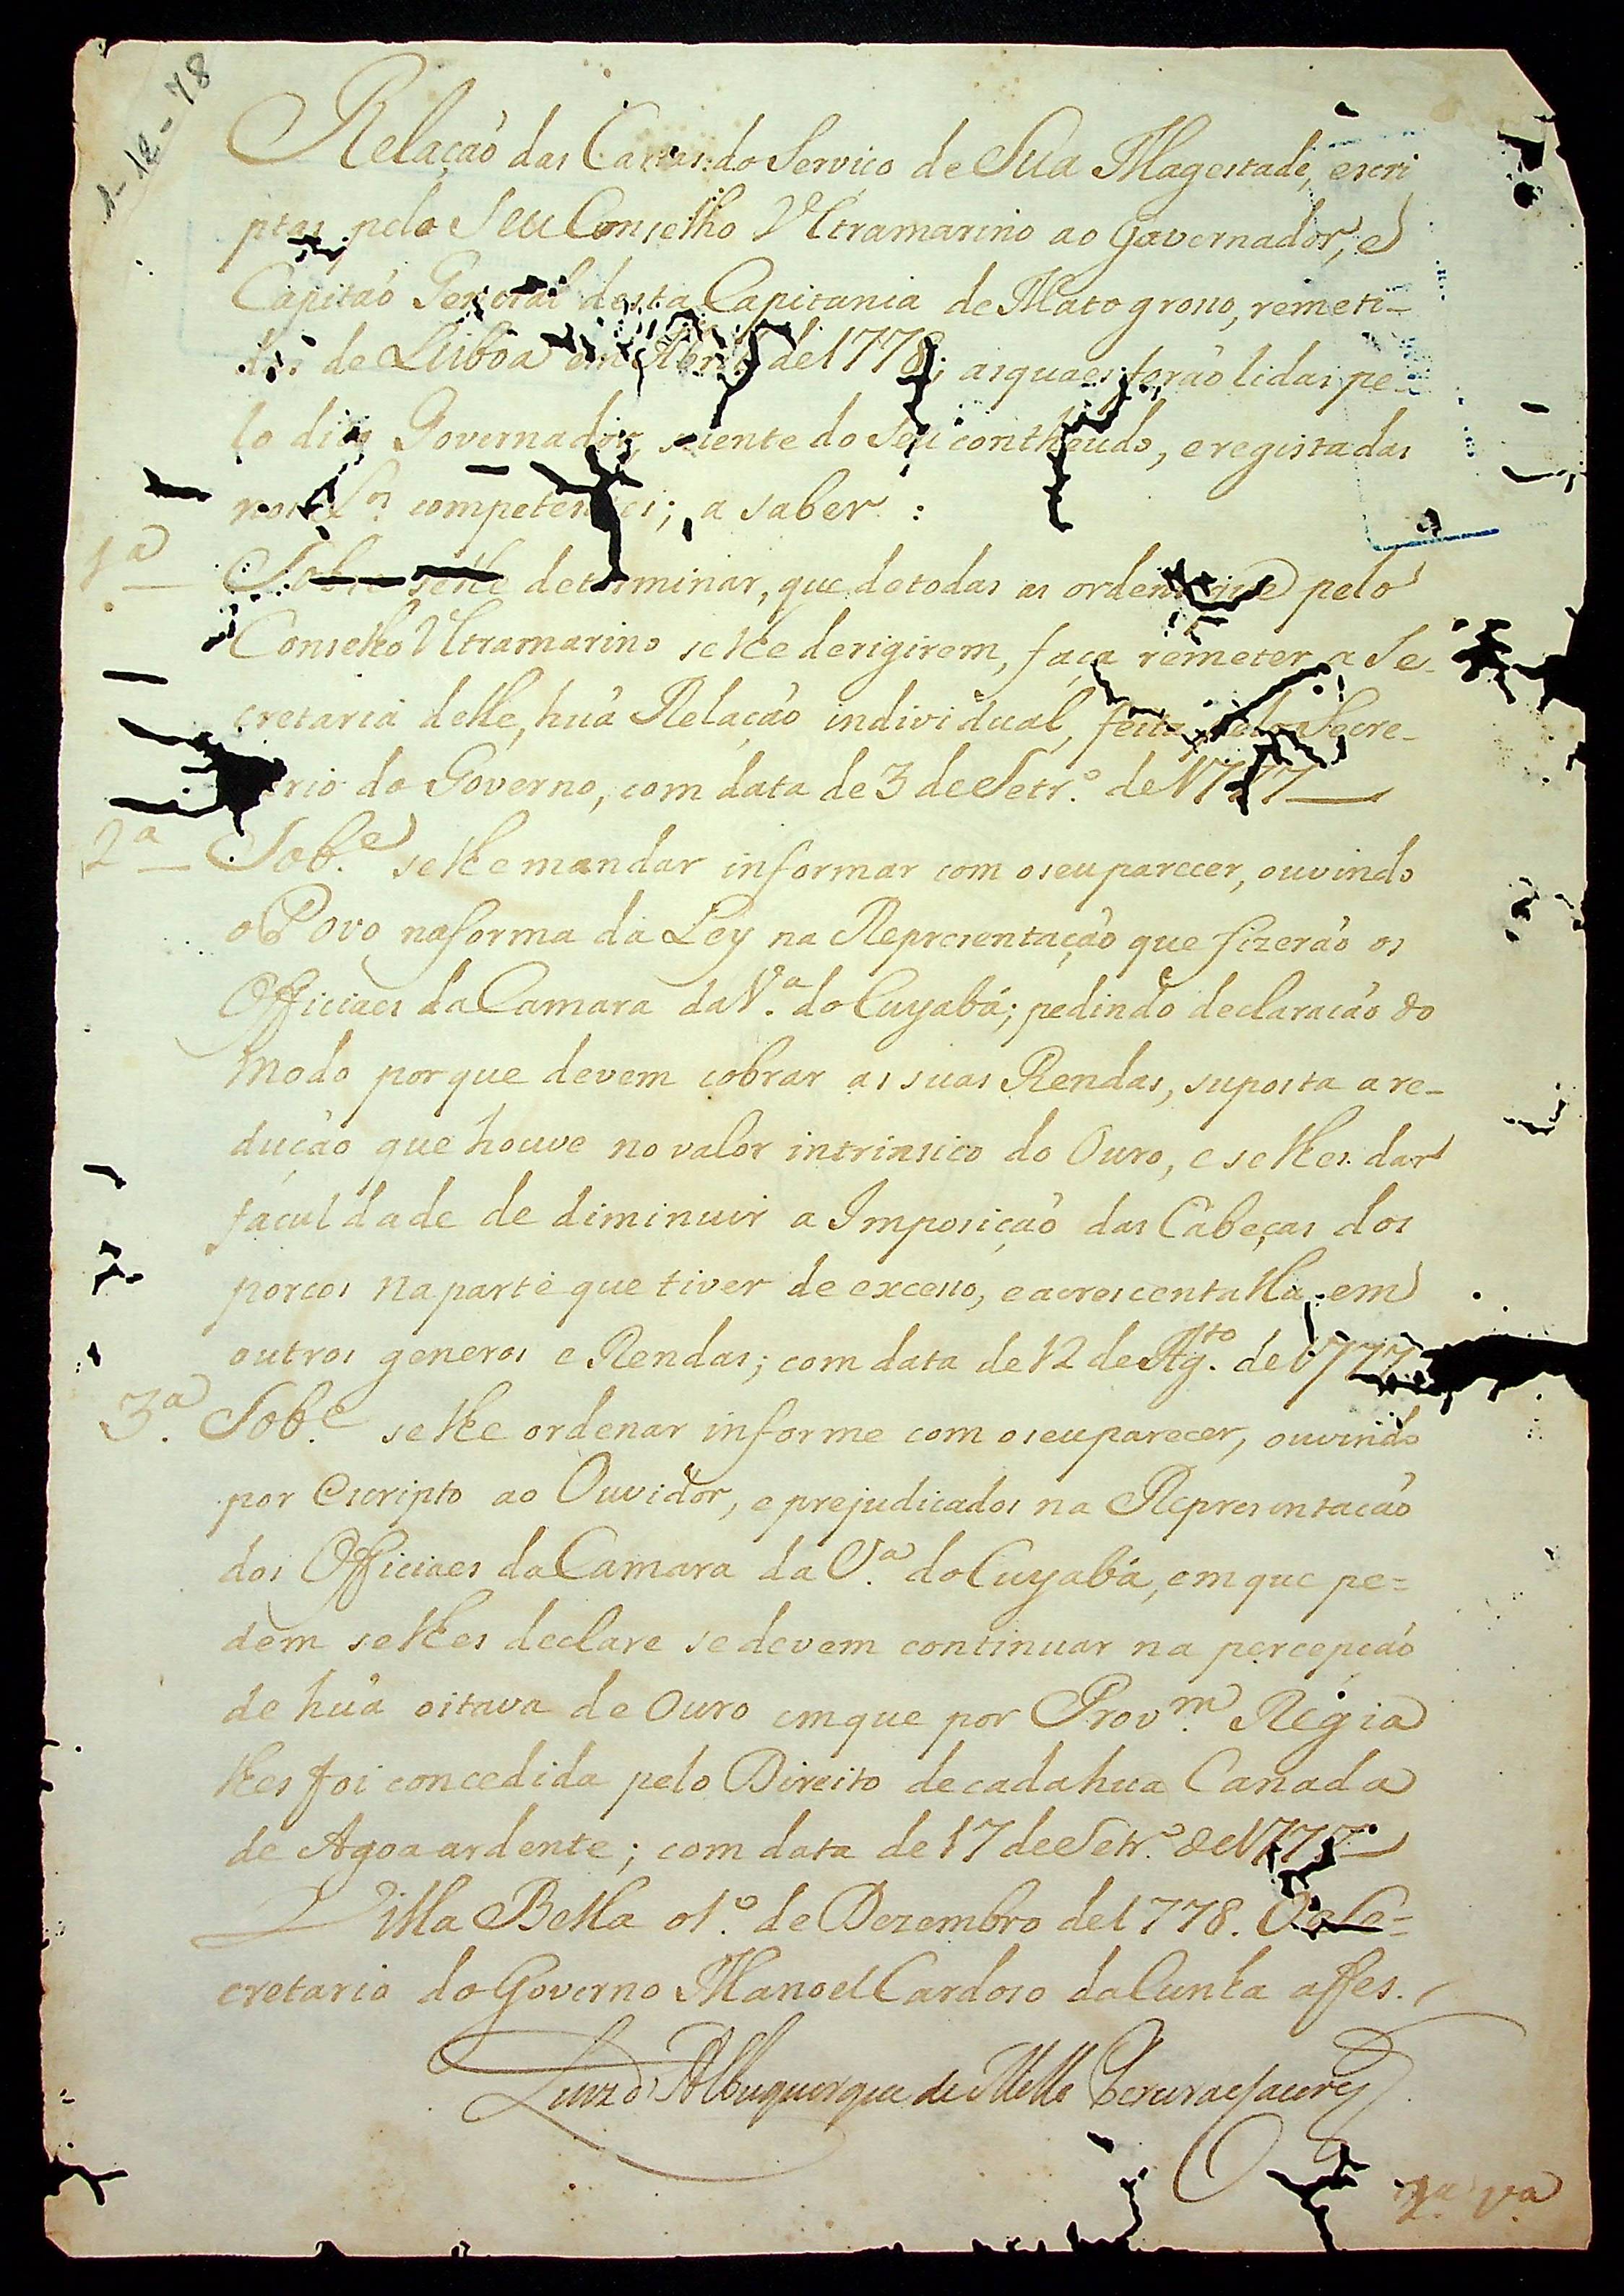 1-12-78
Relação das Cartas do Serviço de Sua Magestade, escri
ptas pelo Seu Conselho Ultramarino ao Governador, e
Capitaõ General desta Capitania de Mato grosso, remeti-
das de Lisboa em Abril de 1778; as quaes foraõ lidas pe-
lo dito Governador, sciente do Seu contheudo, e registadas
nos competentes; a saber :
1ª Sobre selhe determinar, que de todas as ordens que pelo
Conselho Ultramarino selhe derigirem, faça remeter a Se-
cretaria delle, huã Relaçaõ individual, feita pelo Secre-
tario do Governo, com data de 3 de Setr.º de 1777
2ª Sob.e selhe mandar informar com oseuparecer, ouvindo
o Povo naforma da Ley na Representaçaõ que fizeraõ os
Officiaes da Camara da V.ª do Cuyabá; pedindo declaracaõ do
modo porque devem cobrar as suas Rendas, suposta a re-
duçaõ que houve no valor intrinsico do Ouro, e selhes dar
faculdade de diminuir a Imposiçaõ das Cabeças dos
porcos na parte que tiver de excesso, e acrescentalla em
outros generos e Rendas; com data de 12 de Ag.to de 1777
3ª. Sob.e selhe ordenar informe com oseuparecer, ouvindo
por escripto ao Ouvidor, e prejudicados na Representacaõ
dos Officiaes da Camara da V.ª do Cuyabá, em que pe=
dem selhes declare se devem continuar na percepçaõ
de huã oitava de Ouro emque por Prov.m Régia
lhes foi concedida pelo Direito de cada hua Canada
de Agoa ardente; com data de 17 de Setr.º de 1777
Villa Bella o 1.º de Dezembro de 1778. O Se=
cretario do Governo Manoel Cardoso da Cunha a fes.
Luiz d'Albuquerque de Mello Pereira e Caceres
2.ª v.ª